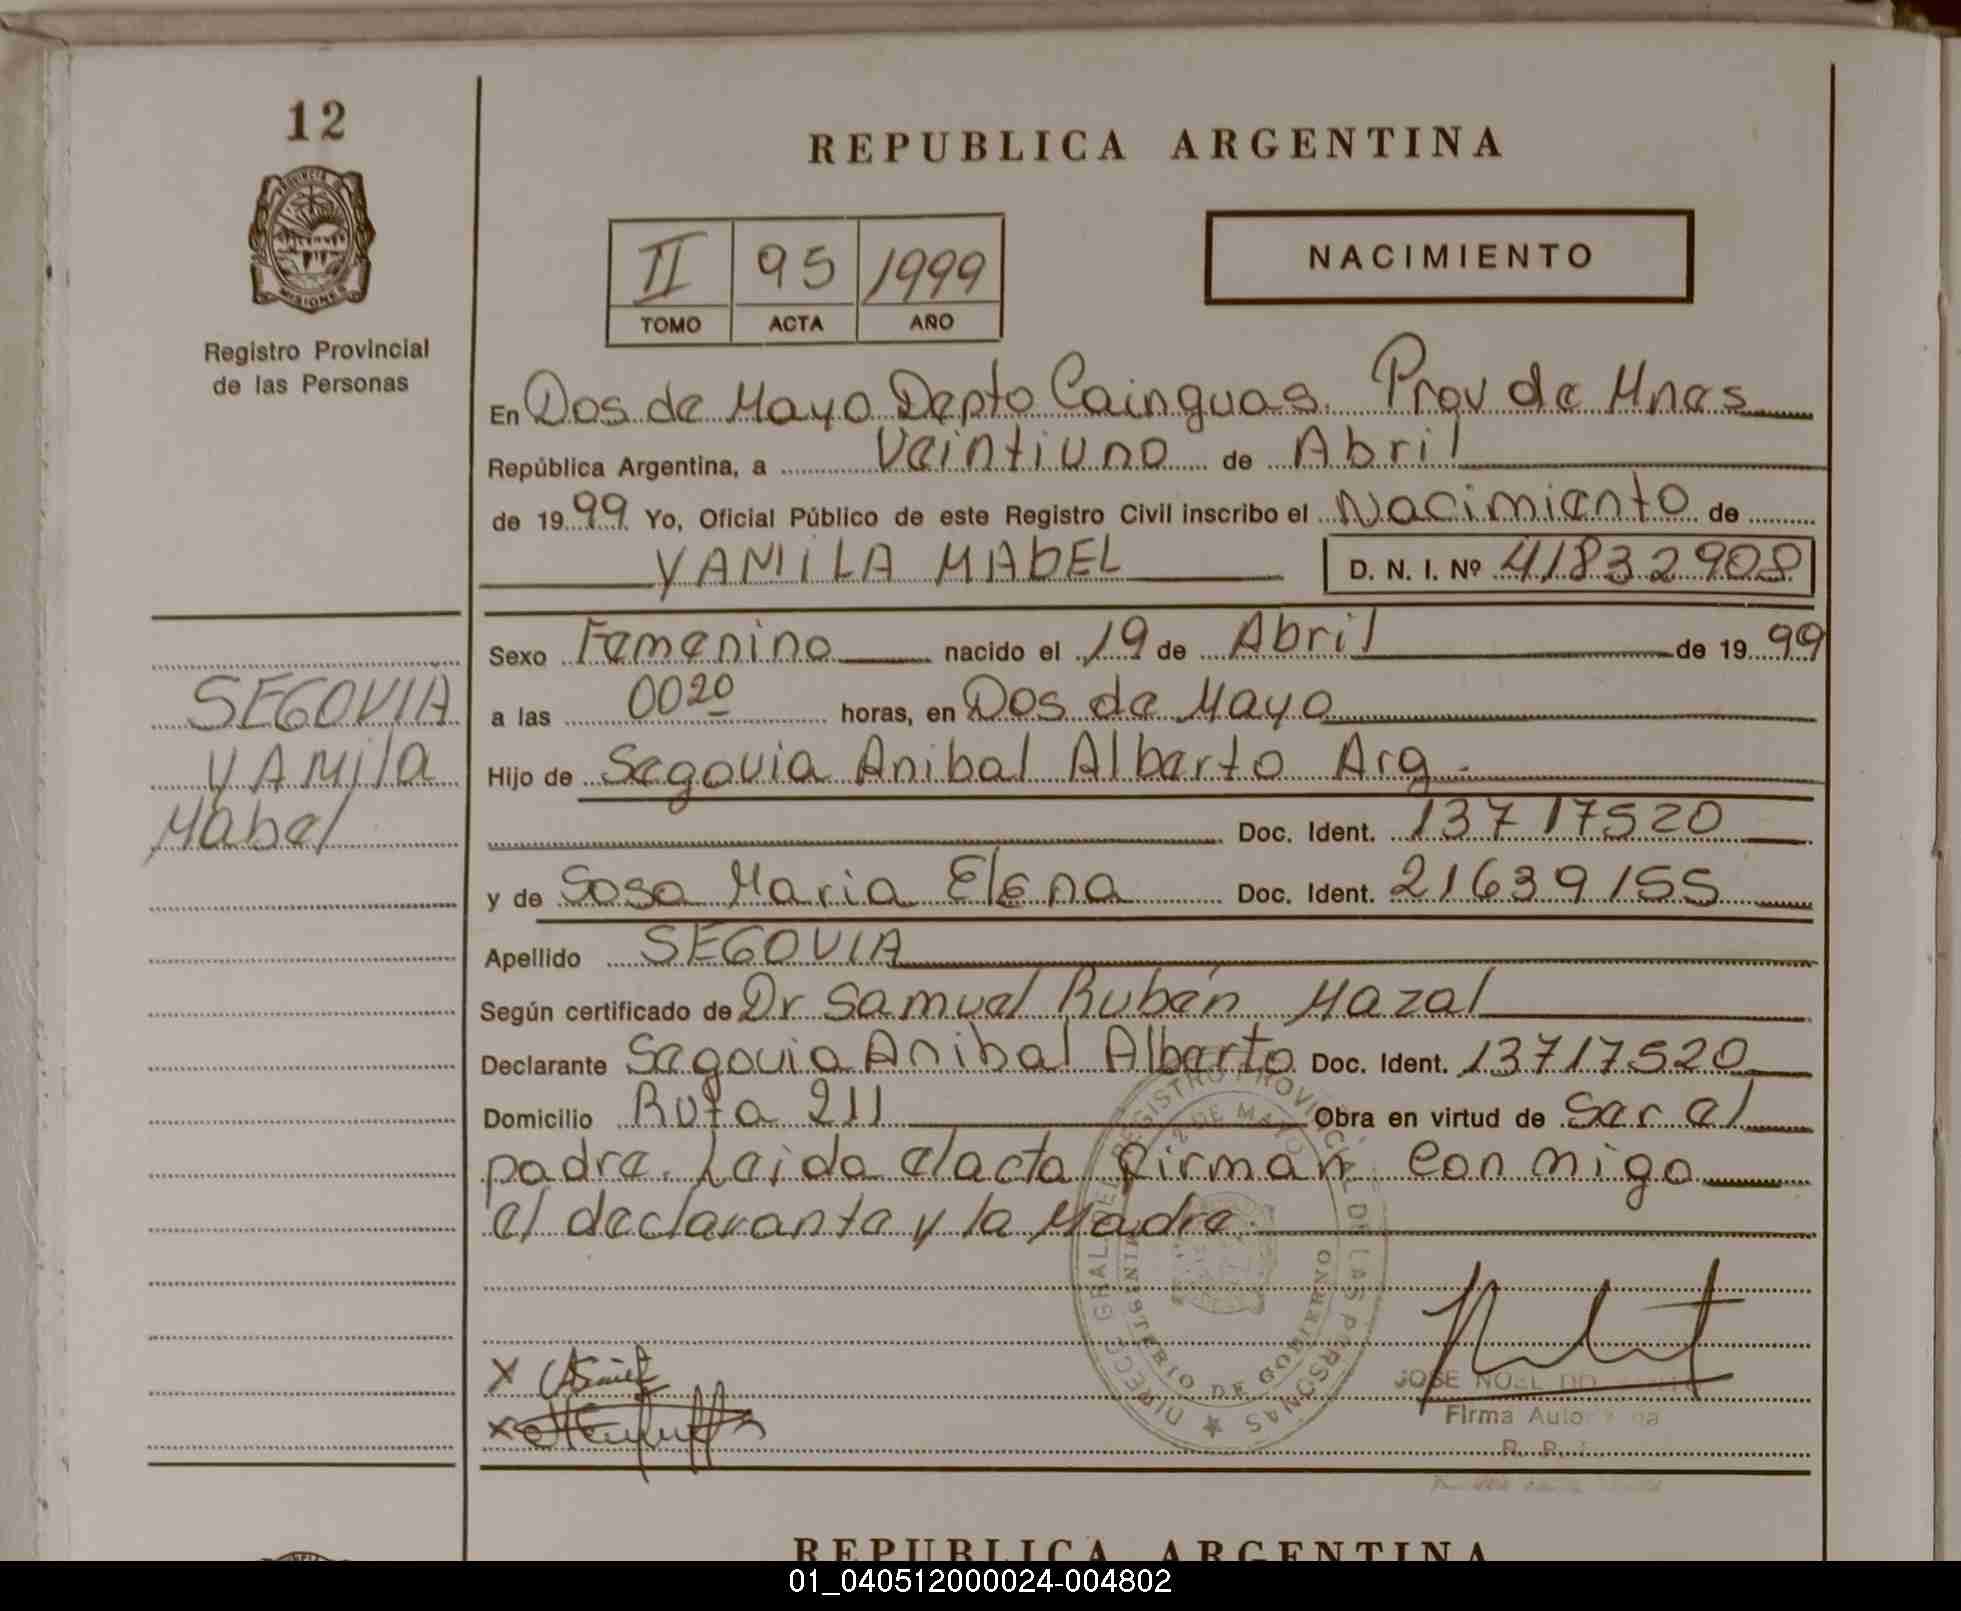 12
PROVINCIA D
MISIONES
Registro Provincial
de las Personas
SEGOVIA
YAMila
Mabel
REPUBLICA ARGENTINA
II 95 1999
TOMO ACTA AÑO
NACIMIENTO
En Dos de Mayo Depto Cainguas. Prov de Mnes
República Argentina, a Veintiuno de Abril
de 1999 Yo, Oficial Público de este Registro Civil inscribo el Nacimiento de
YAMILA MAbEL D. N. I. Nº 41832908
Sexo Femenino nacido el 19 de Abril de 1999
a las 0020 horas, en Dos de Mayo
Hijo de Segovia Anibal Alberto Arg.
Doc. Ident. 13717520
y de Sosa Maria Elena Doc. Ident. 21639155
Apellido SEGOVIA
Según certificado de Dr Samuel Rubén Mazal
Declarante Segovia Anibal Alberto Doc. Ident. 13717520
Domicilio Ruta 211 Obra en virtud de Ser el
padre. Leida el acta firman conmigo
el declarante y la Madre.
DIRECC. GRAL. DEL REGISTRO PROVINCIAL DE LAS PERSONAS
2 DE MAYO
MINISTERIO DE GOBIERNO
X
X
JOSE NOEL DO
Firma
R. P.
REPUBLICA ARGENTINA
01_040512000024-004802